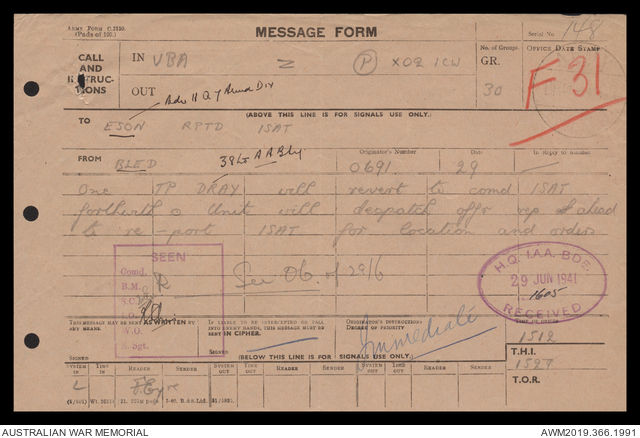 ARMY FORM C.2130.
(Pads of 100.)
MESSAGE FORM
Serial No. 148
CALL AND INSTRUCTIONS
IN VBA Z P XOZ 1CW
No. of Groups.
GR. 30
OFFICE DATE STAMP
F 31
OUT
Adv H Q 7 Armd Div
(ABOVE THIS LINE IS FOR SIGNALS USE ONLY.)
TO ESON RPTD ISAT
FROM BLED
Originator's Number 0691
Date 29
In Reply to Number
One TP DRAY will revert to comd ISAT
forthwith o Unit will despatch offr rep ahead
to re-port ISAT for location and orders
SEEN
Comd.
B.M.
S.C.
I.O.
W.O.
S. Sgt.
See 06 of 29/6
H.Q. I.A.A. BDE.
29 JUN 1941
1605
RECEIVED
THIS MESSAGE MAY BE SENT AS WRITTEN BY ANY MEANS.
IF LIABLE TO BE INTERCEPTED OR FALL INTO ENEMY HANDS, THIS MESSAGE MUST BE SENT IN CIPHER.
ORIGINATOR'S INSTRUCTIONS
DEGREE OF PRIORITY
Immediate
1512
SIGNED
SIGNED
(BELOW THIS LINE IS FOR SIGNALS USE ONLY.)
T.H.I.
1527
T.O.R.
SYSTEM IN
TIME IN
READER
SENDER
SYSTEM OUT
TIME OUT
READER
SENDER
SYSTEM OUT
TIME OUT
READER
SENDER
L
AUSTRALIAN WAR MEMORIAL
AWM2019.366.1991